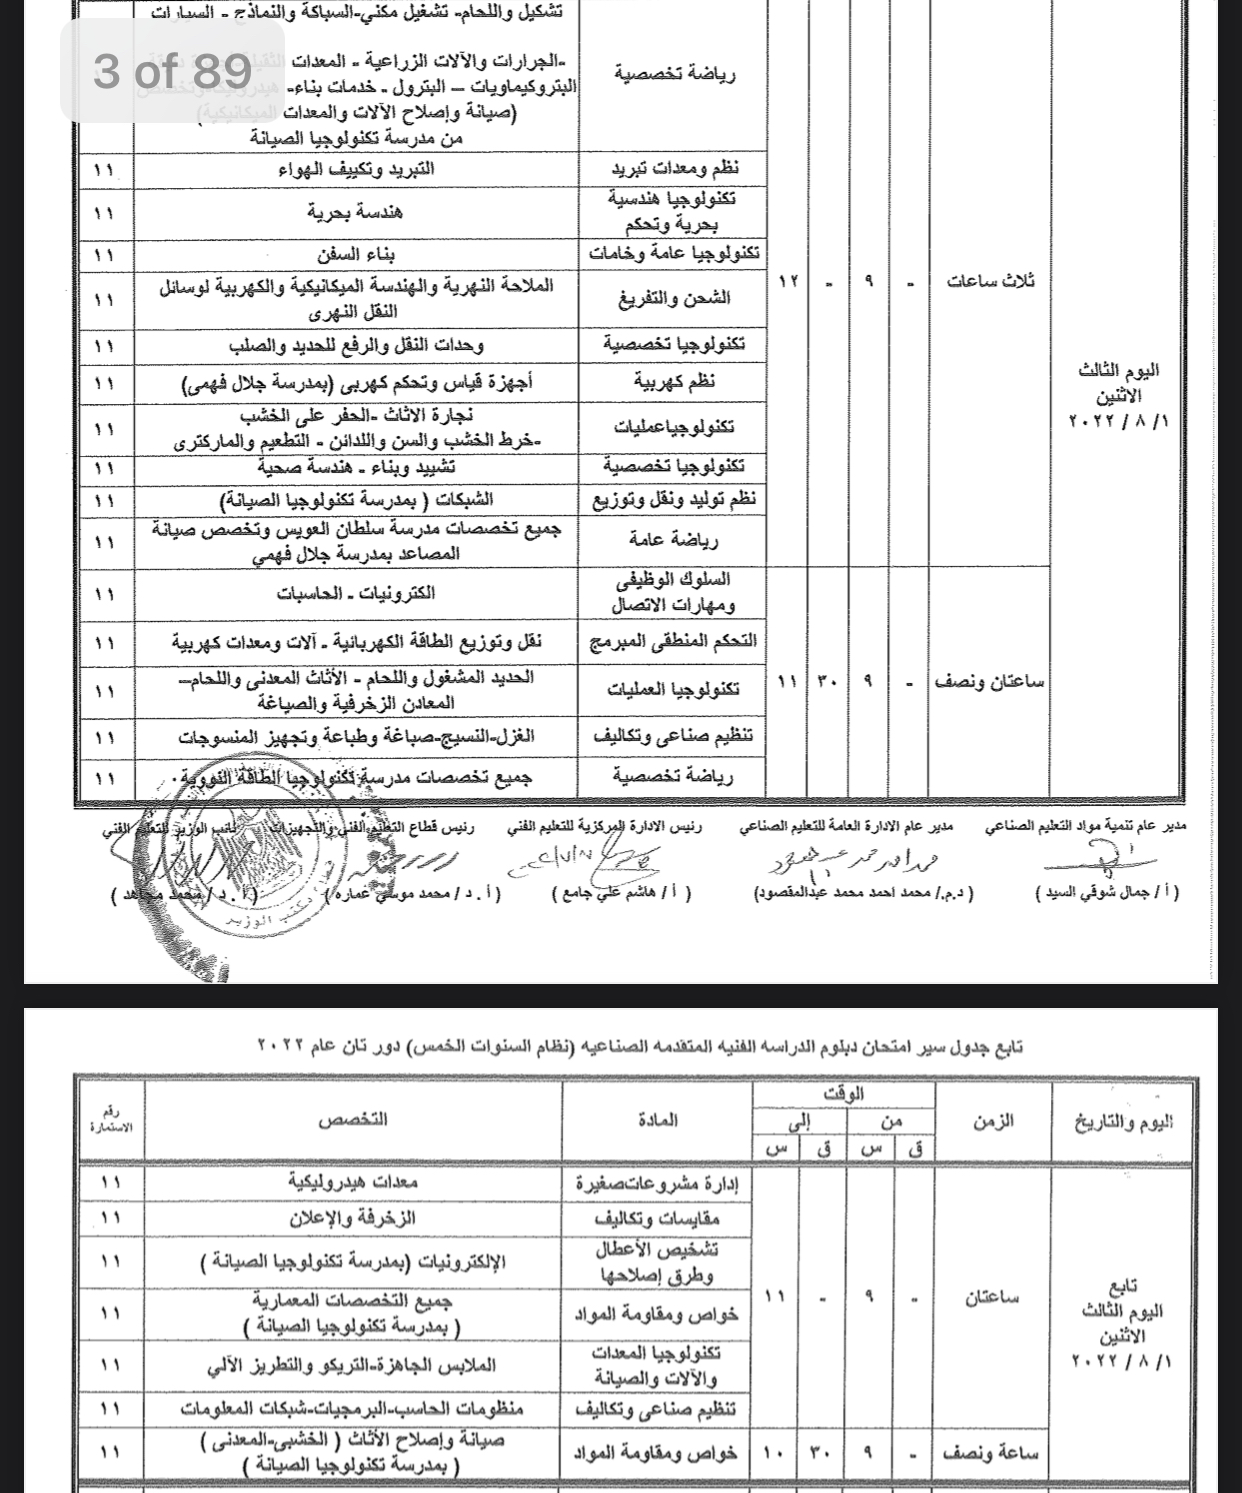 3 of 89
تشكيل واللحام- تشغيل مكني-السباكة والنماذج - السيارات
رياضة تخصصية
-الجرارات والآلات الزراعية - المعدات
البتروكيماويات – البترول - خدمات بناء-
(صيانة وإصلاح الآلات والمعدات الميكانيكية)
من مدرسة تكنولوجيا الصيانة
نظم ومعدات تبريد
التبريد وتكييف الهواء
١١
تكنولوجيا هندسية
بحرية وتحكم
هندسة بحرية
١١
تكنولوجيا عامة وخامات
بناء السفن
١١
اليوم الثالث
الاثنين
١/ ٨ / ٢٠٢٢
ثلاث ساعات
-
٩
-
١٢
الشحن والتفريغ
الملاحة النهرية والهندسة الميكانيكية والكهربية لوسائل
النقل النهرى
١١
تكنولوجيا تخصصية
وحدات النقل والرفع للحديد والصلب
١١
نظم كهربية
أجهزة قياس وتحكم كهربى (بمدرسة جلال فهمى)
١١
تكنولوجياعمليات
نجارة الاثاث -الحفر على الخشب
-خرط الخشب والسن واللدائن - التطعيم والماركترى
١١
تكنولوجيا تخصصية
تشييد وبناء - هندسة صحية
١١
نظم توليد ونقل وتوزيع
الشبكات ( بمدرسة تكنولوجيا الصيانة)
١١
رياضة عامة
جميع تخصصات مدرسة سلطان العويس وتخصص صيانة
المصاعد بمدرسة جلال فهمي
١١
ساعتان ونصف
-
٩
٣٠
١١
السلوك الوظيفى
ومهارات الاتصال
الكترونيات - الحاسبات
١١
التحكم المنطقى المبرمج
نقل وتوزيع الطاقة الكهربائية - آلات ومعدات كهربية
١١
تكنولوجيا العمليات
الحديد المشغول واللحام - الأثاث المعدنى واللحام–
المعادن الزخرفية والصياغة
١١
تنظيم صناعى وتكاليف
الغزل-النسيج-صباغة وطباعة وتجهيز المنسوجات
١١
رياضة تخصصية
جميع تخصصات مدرسة تكنولوجيا الطاقة النووية٠
١١
مدير عام تنمية مواد التعليم الصناعي
مدير عام الادارة العامة للتعليم الصناعي
رئيس الادارة المركزية للتعليم الفني
رئيس قطاع التعليم الفني والتجهيزات
نائب الوزير للتعليم الفني
( أ / جمال شوقي السيد )
( د.م./ محمد احمد محمد عبدالمقصود)
( أ / هاشم علي جامع )
( أ . د / محمد موسي عماره )
( أ . د / محمد مجاهد )
مكتب الوزير
تابع جدول سير امتحان دبلوم الدراسه الفنيه المتقدمه الصناعيه (نظام السنوات الخمس) دور ثان عام ٢٠٢٢
اليوم والتاريخ
الزمن
الوقت
من
إلى
ق
س
ق
س
المادة
التخصص
رقم
الاستمارة
تابع
اليوم الثالث
الاثنين
١/ ٨ / ٢٠٢٢
ساعتان
-
٩
-
١١
إدارة مشروعاتصغيرة
معدات هيدروليكية
١١
مقايسات وتكاليف
الزخرفة والإعلان
١١
تشخيص الأعطال
وطرق إصلاحها
الإلكترونيات (بمدرسة تكنولوجيا الصيانة )
١١
خواص ومقاومة المواد
جميع التخصصات المعمارية
( بمدرسة تكنولوجيا الصيانة )
١١
تكنولوجيا المعدات
والآلات والصيانة
الملابس الجاهزة-التريكو والتطريز الآلي
١١
تنظيم صناعى وتكاليف
منظومات الحاسب-البرمجيات-شبكات المعلومات
١١
ساعة ونصف
-
٩
٣٠
١٠
خواص ومقاومة المواد
صيانة وإصلاح الأثاث ( الخشبى-المعدنى )
( بمدرسة تكنولوجيا الصيانة )
١١